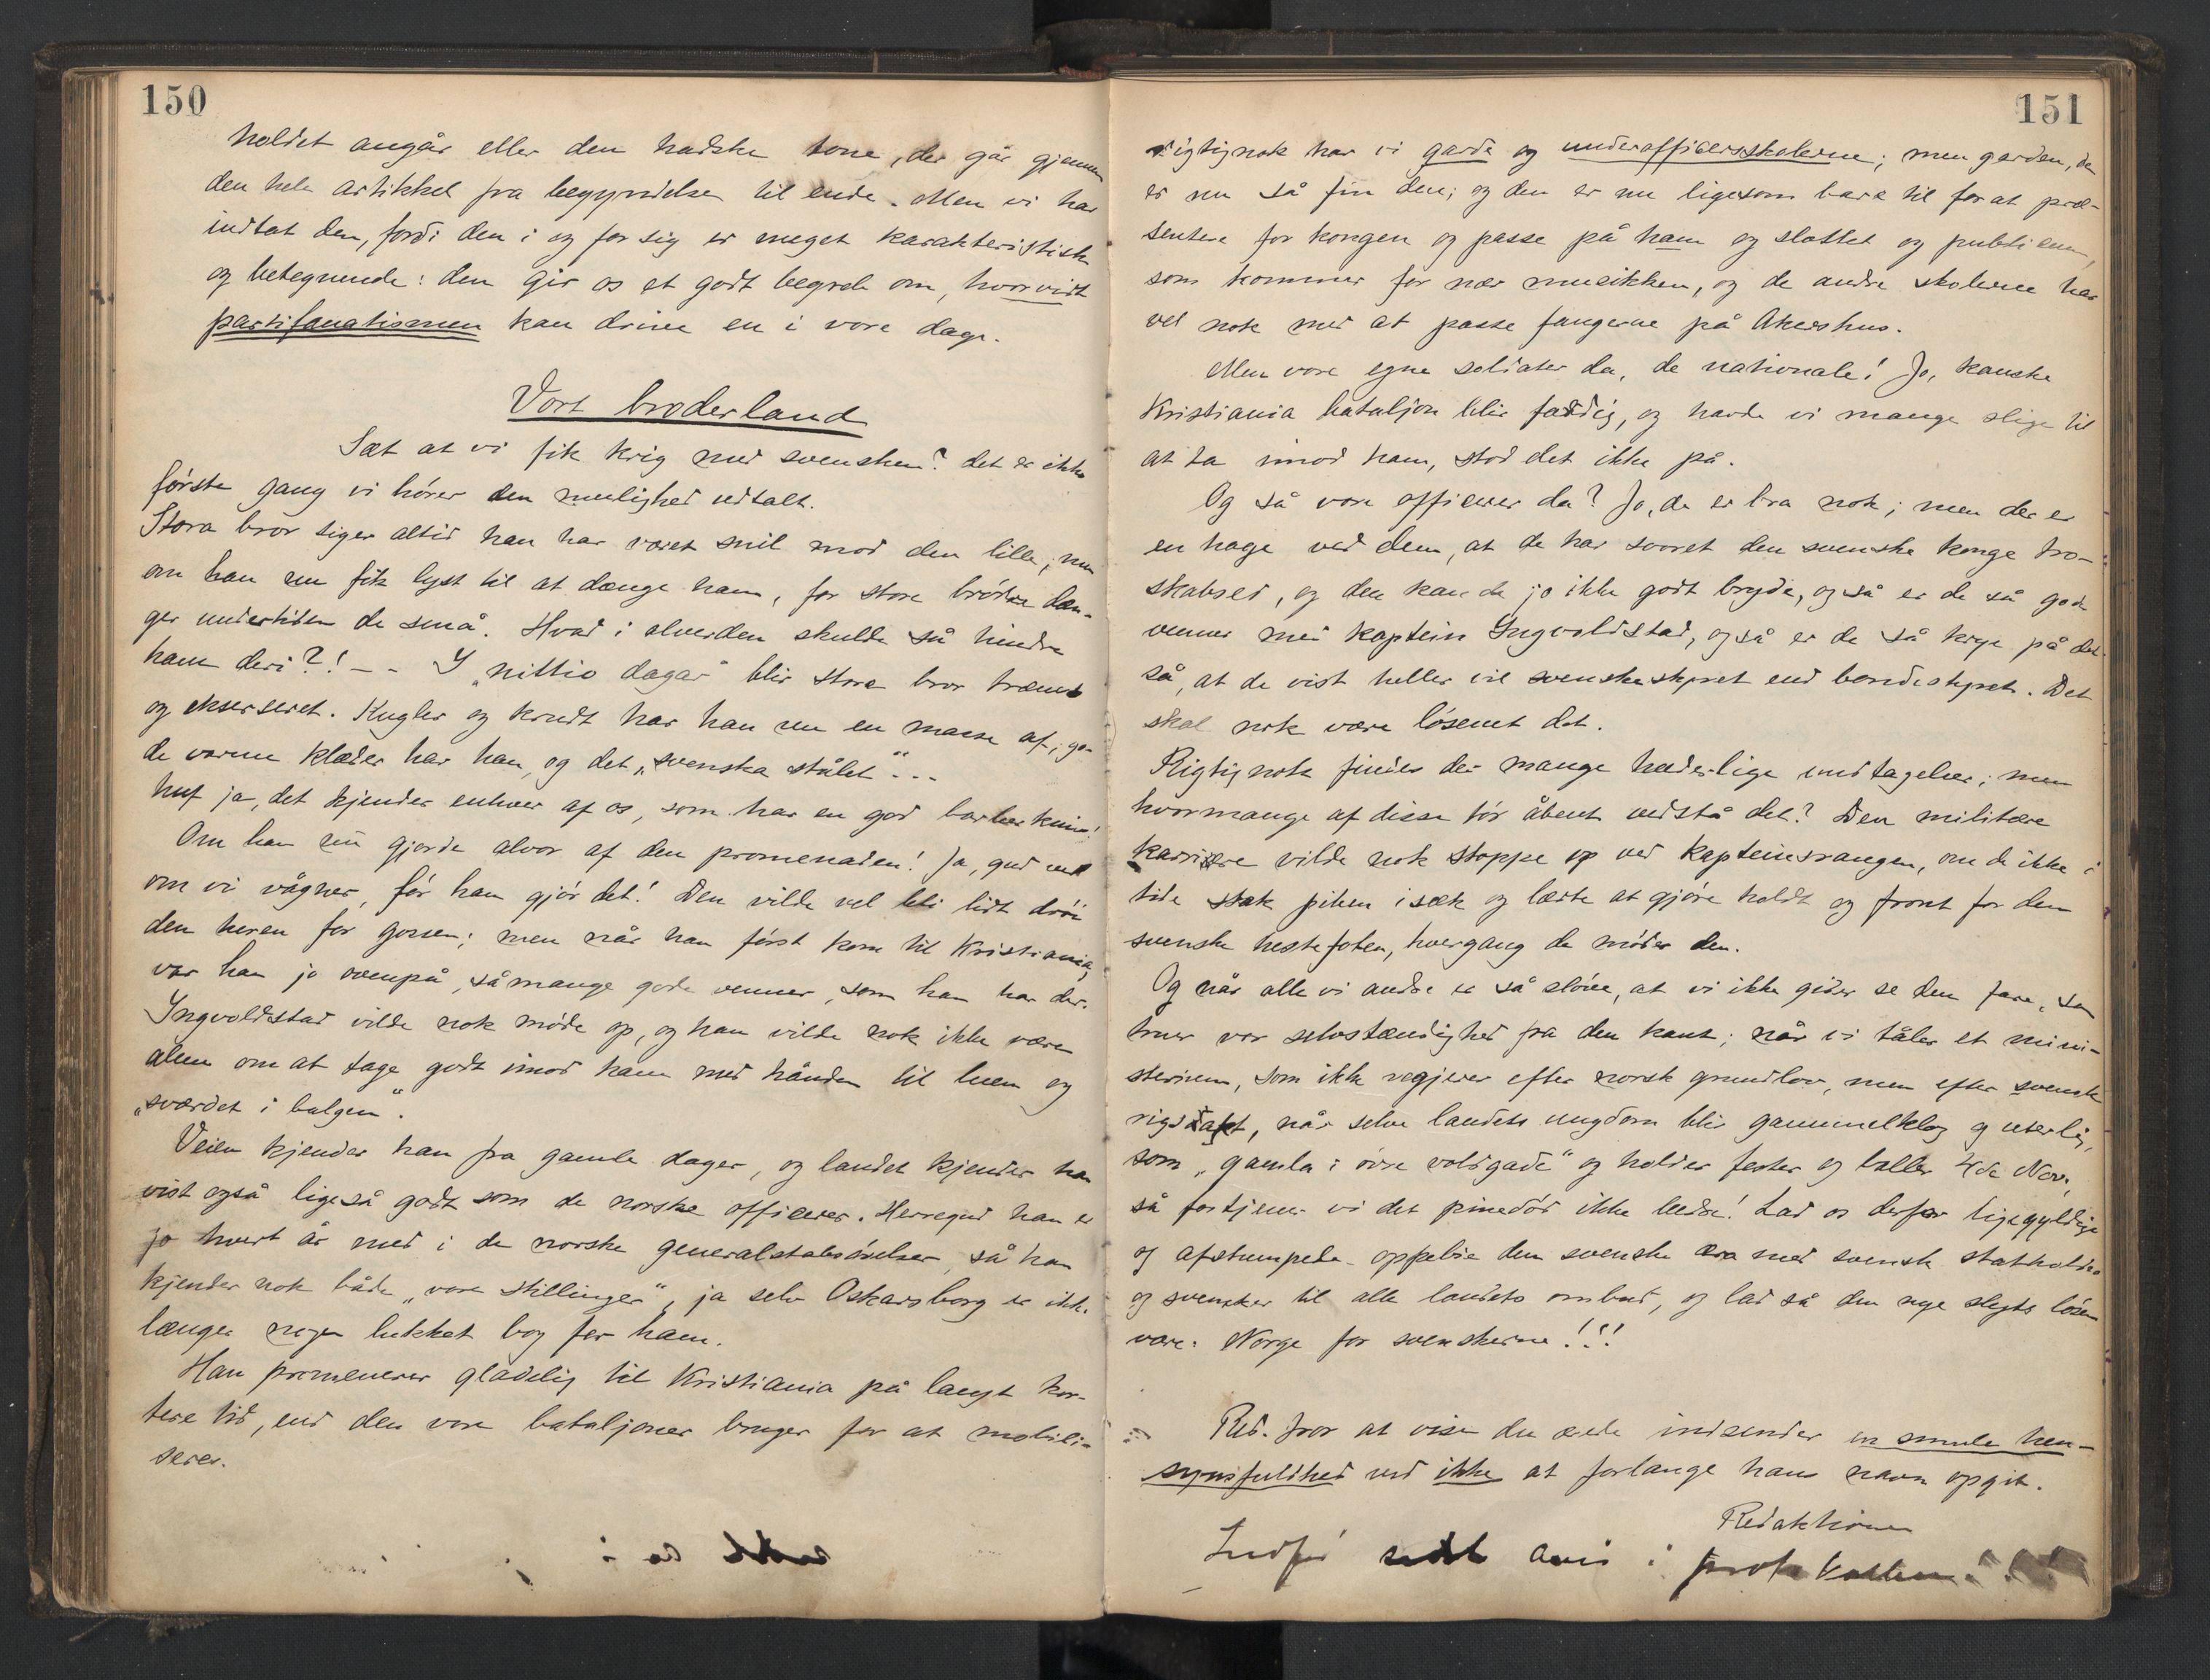 150
holdet angår eller den hadske tone, der går gjennem
den hele artikkel fra begyndelsen til ende. Men vi har
indtat den, fordi den i og for sig er meget karakteristisk
og betegnende: den gir os et godt begreb om, hvor vidt
partifanatismen kan drive en i vore dage.
Vort broderland
Sæt at vi fik krig med svensken? det er ikke
første gang vi hører den mulighed udtalt.
Stora bror siger altid han har været snil mod den lille; men
om han nu fik lyst til at dænge ham, for store brødre dæn-
ger undertiden de små. Hvad i alverden skulde så hindre
ham deri?! -- I "nittio dagar" blir store bror trænet
og ekserseret. Kugler og krudt har han nu en masse af, go-
de varme klæder har han, og det "svenska stålet"...
huf ja, det kjender enhver af os, som har en god barberkniv!
Om han nu gjorde alvor af den promenaden! Ja, gud ved
om vi vågner, før han gjør det! Den vilde vel bli lidt drøi
den turen for gossen; men når han først kom til Kristiania,
var han jo ovenpå, så mange gode venner, som han har der.
Ingvoldstad vilde nok møde op, og han vilde nok ikke være
alene om at tage godt imod ham med hånden til luen og
"sværdet i balgen".
Veien kjender han fra gamle dager, og landet kjender han
vist også ligeså godt som de norske officerer. Herregud han er
jo hvert år med i de norske generalstabsøvelser, så han
kjender nok både "vore stillinger", ja selv Oskarsborg er ikke
længer nogen lukket bog for ham.
Han promenerer gladelig til Kristiania på langt kor-
tere tid, end den vore bataljoner bruger for at mobili-
serer.
151
rigtignok har vi garde og underofficersskolerne; men garden, den
er nu så fin den; og den er nu ligesom bare til for at præ-
sentere for kongen og passe på ham og slottet og publicum,
som kommer for nær musikken, og de andre skolerne har
vel nok med at passe fangerne på Akershus.
Men vore egne soldater da, de nationale! Jo, kanske
Kristiania bataljon blir færdig, og havde vi mange slige til
at ta imod ham, stod det ikke på.
Og så vore officerer da? Jo, de er bra nok; men der er
en hage ved dem, at de har svoret den svenske konge tro-
skabsed, og den kan de jo ikke godt bryde, og så er de så gode
venner med kaptein Ingvoldstad, og så er de så krye på det
så, at de vist heller vil svenskestyret end bondestyret. Det
skal nok være løsenet det.
Rigtignok findes der mange hæderlige undtagelser; men
hvormange af disse tør åbent vedstå det? Den militære
karriere vilde nok stoppe op ved kapteinsrangen, om de ikke i
tide stak piben i sæk og lærte at gjøre holdt og front for den
svenske hestefoten, hvergang de møder den.
Og når alle vi andre er så sløve, at vi ikke gider se den fare, som
truer vor selvstændighed fra den kant; når vi tåler et mini-
sterium, som ikke regjerer efter norsk grundlov, men efter svensk
rigsdagt, når selve landets ungdom blir gammelklog og uterlig,
som "gamla i øvre voldgade" og holder fester og baller 4de Nov.,
så fortjener vi det pinedød ikke bedre! Lad os derfor ligegyldige
og afstumpede oppebie den svenske æra med svensk statholder
og svensker til alle landets ombud, og lad så den nye slegts løsen
være: Norge for svenskerne!!!
Red. tror at vise den ærede indsender en smule hen-
synsfuldhed ved ikke at forlange hans navn opgit.
Redaktionen
Indfør sidst avis i protokollen!